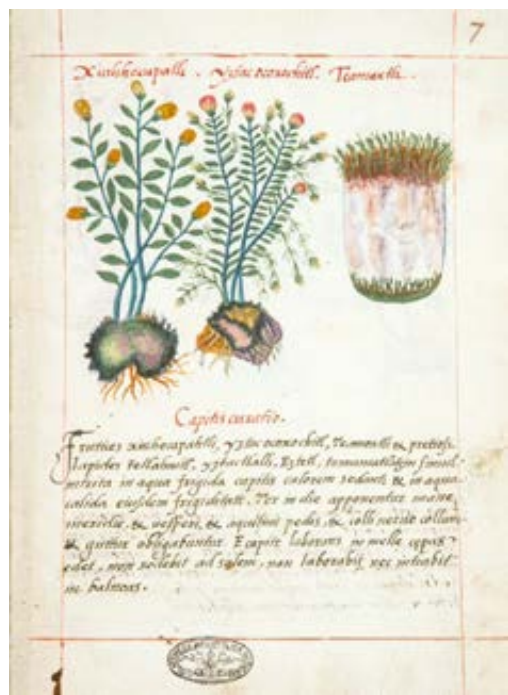 7
Xiuhhecapatli . yztac ocoxochitl. Teamoxtli .
Capitis curatio.
Frutices xiuhhecapatli, yztac ocoxochitl, Teamoxtli & pretiosi
Lapides tetlahuitl, yztactlalli, Eztetl, temamatlatzin simul
intrita in aqua frigida capitis calorem sedant, & in aqua
calida eiusdem frigiditatē. Ter in die apponentur mane,
meridie, & vesperi, &
pedis, & colli nervo collum
& guttur obligabuntur. E capite laborans in melle cępas
edet, non sedebit ad solem, non laborabit, nec intrabit
in balneas.